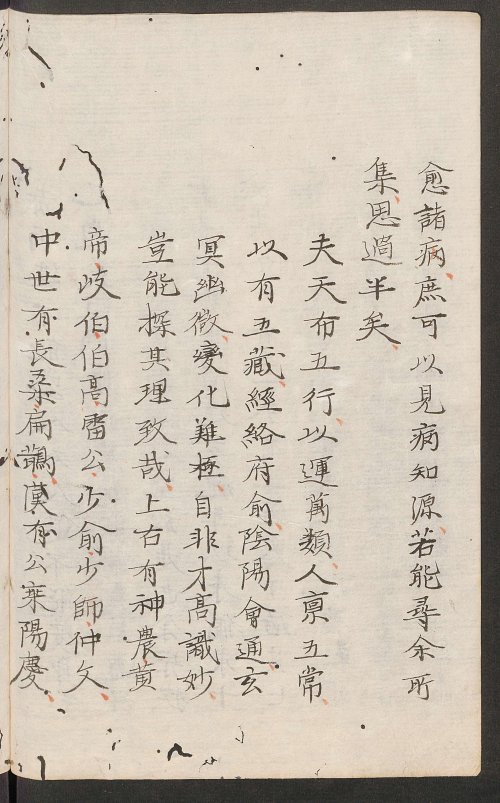 愈諸病庶可以見病知源若能尋余所
集思過半矣
夫天布五行以運萬類人禀五常
以有五藏經絡府俞陰陽會通玄
冥幽微變化難極自非才高識妙
豈能探其理致哉上古有神農黄
帝岐伯伯高雷公少俞少師仲文
中世有長桑扁鵲漢有公乗陽慶